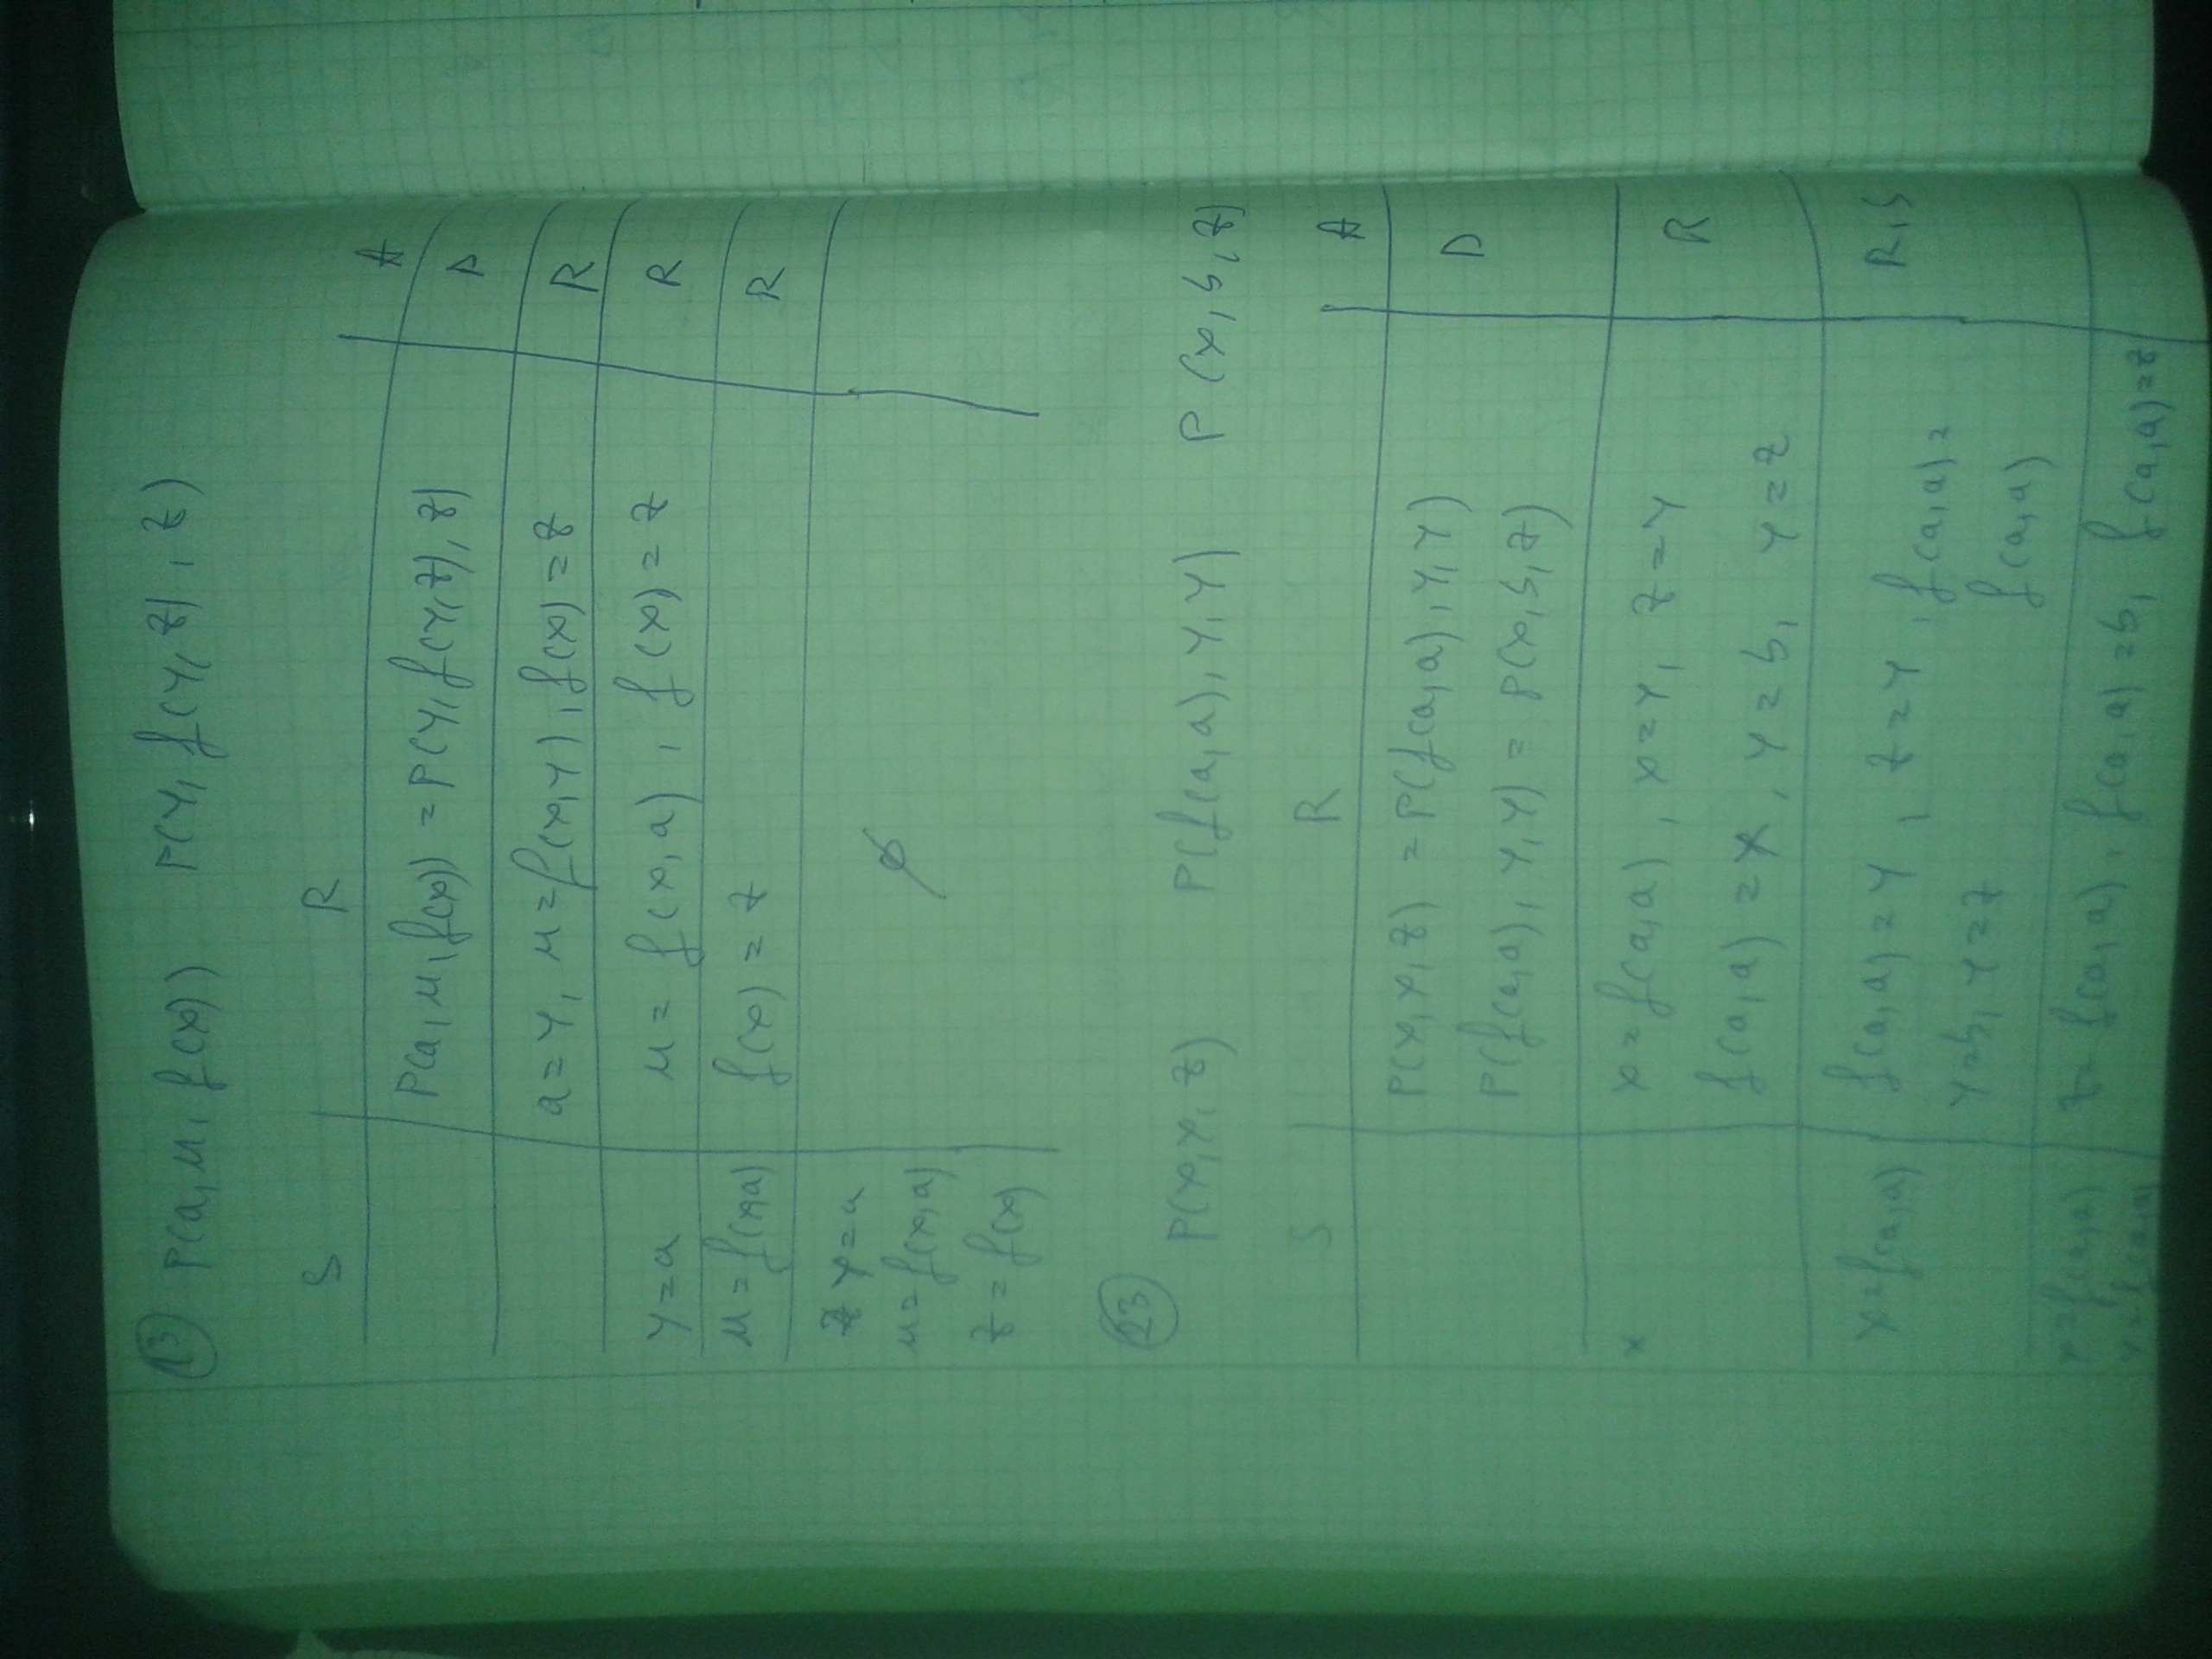 13 P(a, u, f(x)) P(y, f(y, z), z)
S R A
P(a, u, f(x)) = P(y, f(y, z), z) D
a = y, u = f(x, y), f(x) = z R
y = a u = f(x, a), f(x) = z R
u = f(x, a) f(x) = z R
y = a
u = f(x, a) ∅
z = f(x)
23
P(x, x, z) P(f(a, a), y, y) P(x, b, z)
S R A
P(x, x, z) = P(f(a, a), y, y) D
P(f(a, a), y, y) = P(x, b, z)
x x = f(a, a), x = y, z = y R
f(a, a) = x, y = b, y = z
x = f(a, a) f(a, a) = y, z = y, f(a, a) = R, S
y = b, y = z f(a, a)
x = f(a, a) z = f(a, a), f(a, a) = b, f(a, a) = z
y = f(a, a)